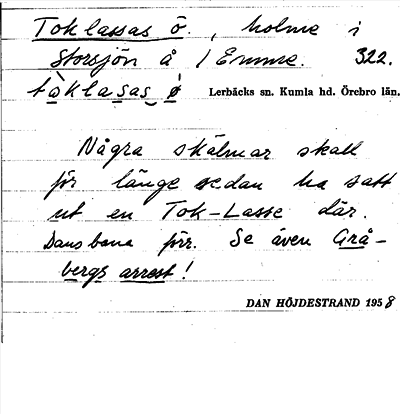 Toklassas ö., holme i
Storsjön å / Emme. 322.
tòklasas ǿ Lerbäcks sn. Kumla hd. Örebro län.
Några skälmar skall
för länge sedan ha satt
ut en Tok-Lasse där.
Dansbana förr. Se även Grå-
bergs arrest!
DAN HÖJDESTRAND 1958